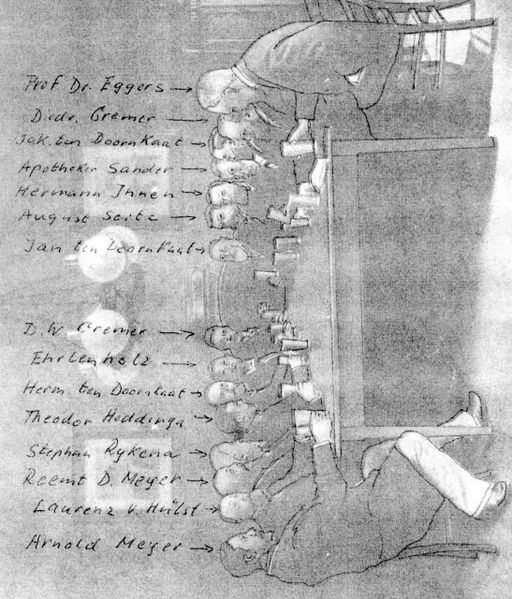 Prof. Dr. Eggers
Diedr. Cremer
Jak. ten Doornkaat
Apotheker Sander
Hermann Ihnen
August Seitz
Jan ten Doornkaat
D. W. Cremer
Ehrlenholz
Herm. ten Doornkaat
Theodor Hoddinga
Stephan Rykena
Reemt D. Meyer
Laurenz v. Hülst
Arnold Meyer